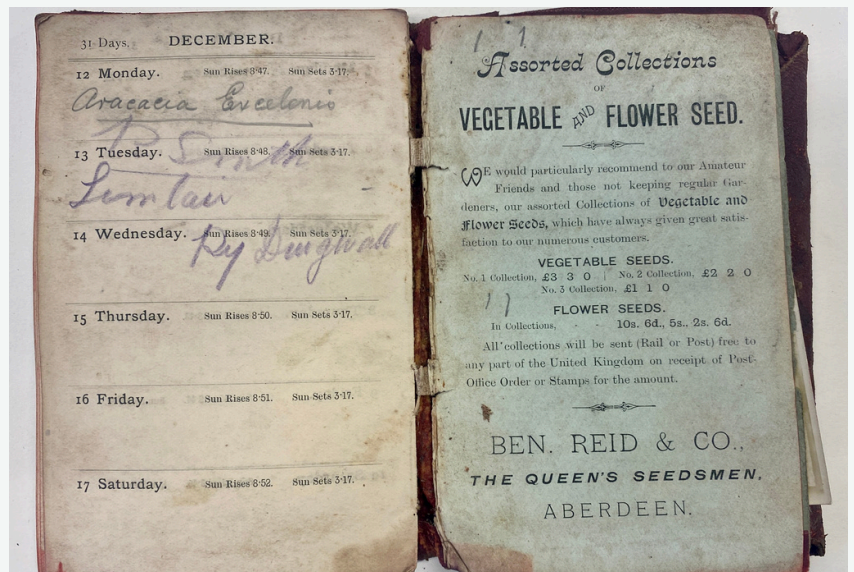 31 Days. DECEMBER.
12 Monday. Sun Rises 8·47. Sun Sets 3·17.
Aracacia Excelenis
13 Tuesday. Sun Rises 8·48. Sun Sets 3·17.
Smith
Sinclair
14 Wednesday. Sun Rises 8·49. Sun Sets 3·17.
By Dingwall
15 Thursday. Sun Rises 8·50. Sun Sets 3·17.
16 Friday. Sun Rises 8·51. Sun Sets 3·17.
17 Saturday. Sun Rises 8·52. Sun Sets 3·17.
Assorted Collections
OF
VEGETABLE AND FLOWER SEED.
WE would particularly recommend to our Amateur
Friends and those not keeping regular Gar-
deners, our assorted Collections of Vegetable and
Flower Seeds, which have always given great satis-
faction to our numerous customers.
VEGETABLE SEEDS.
No. 1 Collection, £3 3 0 | No. 2 Collection, £2 2 0
No. 3 Collection, £1 1 0
FLOWER SEEDS.
In Collections, - - 10s. 6d., 5s., 2s. 6d.
All collections will be sent (Rail or Post) free to
any part of the United Kingdom on receipt of Post-
Office Order or Stamps for the amount.
BEN. REID & CO.,
THE QUEEN'S SEEDSMEN,
ABERDEEN.